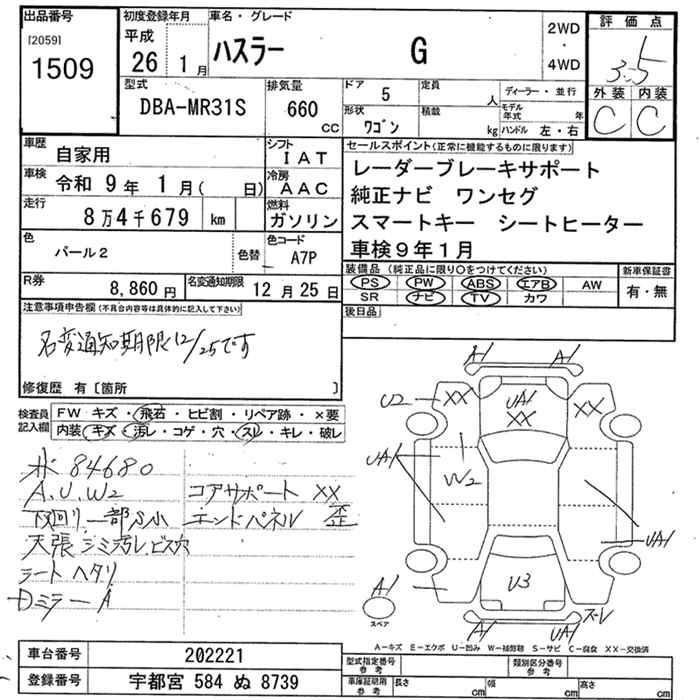 出品番号
[2059]
1509
初度登録年月
平成
26 1月
車名・グレード
ハスラー G
2WD
・
4WD
評価点
3.5
外装 内装
C C
型式
DBA-MR31S
排気量
660
cc
ドア 5
定員 人
形状
ワゴン
積載 kg
ディーラー・並行
モデル年式 年
ハンドル 左・右
車歴
自家用
シフト
IAT
車検
令和 9年 1月( 日)
冷房
AAC
走行
8万4千679 km
燃料
ガソリン
色
パール2
色替
色コード
A7P
R券
8,860円
名変通知期限
12月25日
セールスポイント(正常に機能するものに限ります)
レーダーブレーキサポート
純正ナビ ワンセグ
スマートキー シートヒーター
車検9年1月
装備品(純正品に限り○をつけてください)
PS PW ABS エアB AW
SR ナビ TV カワ
新車保証書
有・無
後日品
注意事項申告欄(不具合内容等は具体的に記入して下さい)
名変通知期限12/25です
修復歴 有〔箇所 〕
検査員
記入欄
FW キズ・飛石・ヒビ割・リペア跡・×要
内装 キズ・汚レ・コゲ・穴・スレ・キレ・破レ
メ 84680
A、U、W2
コアサポート XX
下回り一部S小
エンドパネル 歪
天張シミ汚レ、ビス穴
シート ヘタリ
Dミラー A
A1 A1
U2 XX UA1 XX XX
UA1 W2
UA1
U3
A1
スペア
A1 UA1 スレ
A-キズ E-エクボ U-凹み W-補修跡 S-サビ C-腐食 XX-交換済
車台番号 202221
登録番号 宇都宮 584 ぬ 8739
型式指定番号
参考
類別区分番号
参考
車庫証明用
参考
長さ cm 幅 cm 高さ cm